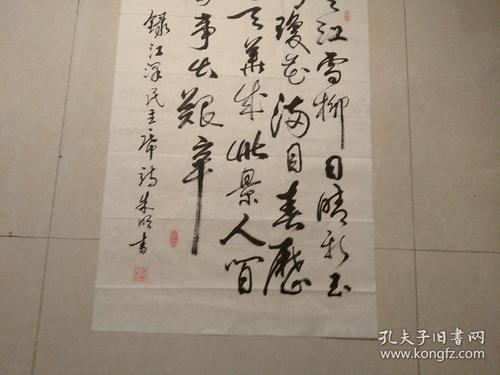 江雪柳日晴新玉
瓊花满目春歷
天華成此景人间
事出艱辛
錄江泽民主席诗朱书
孔夫子旧书网
www.kongfz.com